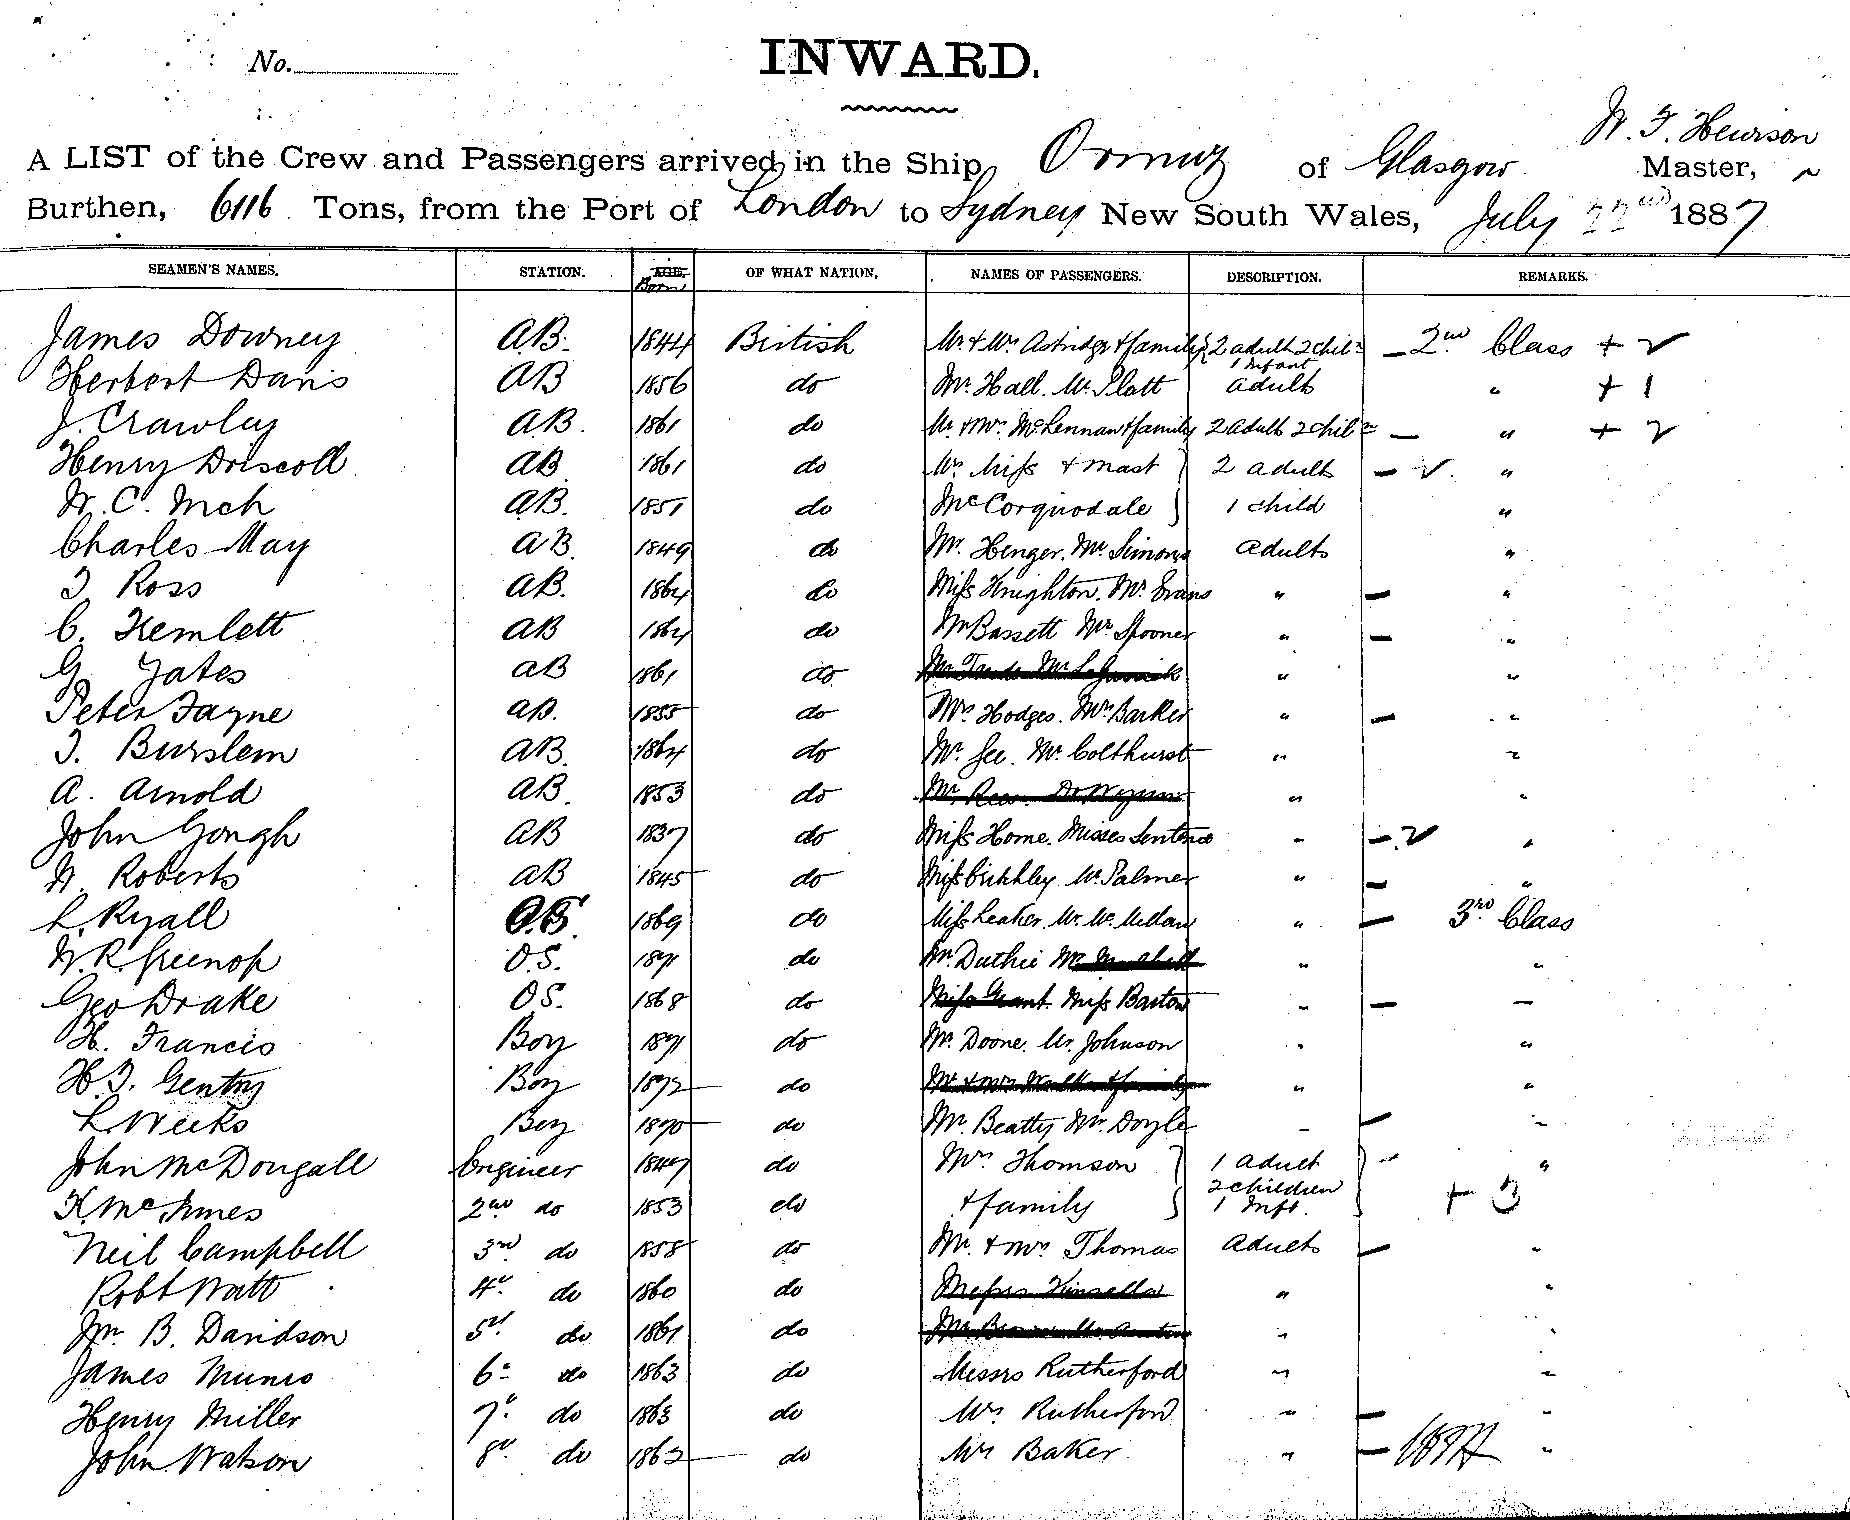 No.
INWARD.
W. F. Hewison
A LIST of the Crew and Passengers arrived in the Ship, Ormuz of Glasgow Master,
Burthen, 6116 Tons, from the Port of London to Sydney New South Wales, July 22nd 1887
SEAMEN'S NAMES. STATION. AGE. Born OF WHAT NATION. NAMES OF PASSENGERS. DESCRIPTION. REMARKS.
James Downey A.B. 1844 British Mr. & Mrs. & family 2 adult 2 chiln 1 Infant 2nd Class + 2
Herbert Davis AB 1856 do Mr. Hall. Mr. Platt adult " + 1
J. Crawley A.B. 1861 do Mr. & Mrs. McLennan & family 2 adult 2 chiln " + 2
Henry Driscoll AB 1861 do Mrs. Miss & Mast 2 adult "
W. C. AB. 1851 do McCorquodale 1 child "
Charles May AB. 1849 do Mr. Henger. Mr. Simons adults "
T Ross AB. 1864 do Miss Knighton. Mr. Evans " "
C. Hemlett AB 1864 do Mr Bassett Mr. Spooner " "
G Yates AB 1861 do " "
Peter Fayne AB. 1855 do Mrs. Hodges. Mrs. Barker " "
T. Burslem AB. 1864 do Mr. Gee. Mr. Colthurst " "
A. Arnold AB. 1853 do " "
John Gough AB 1837 do Miss Home. Misses " 2 "
W. Roberts AB 1845 do Miss Mr. Palmer " "
L. Ryall O.S. 1869 do Miss Leaker. Mr. McMillan " 3rd Class
W. R. Greenop O.S. 1871 do Mr. Duthie " "
Geo Drake O.S. 1868 do Miss Grant. Miss Barton " "
H. Francis Boy 1871 do Mr. Doone. Mr. Johnson " "
H. T. Gentry Boy 1872 do " "
L Weeks Boy 1870 do Mr. Beatty Mr. Doyle " "
John McDougall Engineer 1847 do Mrs. Thomson 1 adult "
K. McInnes 2nd do 1853 do & family 2 children 1 Inft. + 3
Neil Campbell 3rd do 1858 do Mr. & Mrs. Thomas adults "
Robt Watt 4th do 1860 do Messrs Kinsella " "
Jno. B. Davidson 5th do 1861 do " "
James Munro 6th do 1863 do Messrs Rutherford " "
Henry Miller 7th do 1863 do Mrs. Rutherford " "
John Watson 8th do 1862 do Mrs Baker " "